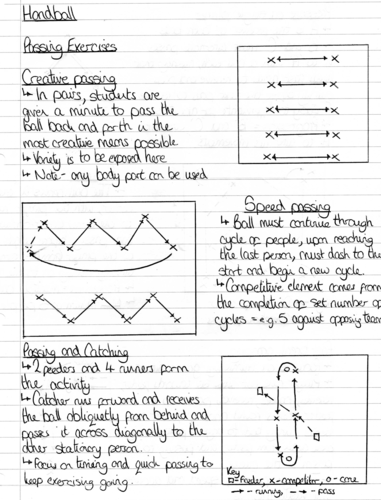 Handball
Passing Exercises
Creative passing
↳ In pairs, students are
given a minute to pass the
ball back and forth in the
most creative means possible
↳ Variety is to be exposed here
↳ Note - any body part can be used
Speed passing
↳ Ball must continue through
cycle of people, upon reaching
the last person, must dash to the
start and begin a new cycle.
↳ Competitive element comes from
the completion of set number of
cycles = e.g. 5 against opposing team
Passing and Catching
↳ 2 feeders and 4 runners form
the activity
↳ Catcher runs forward and receives
the ball obliquetly from behind and
passes it across diagonally to the
other stationary person.
↳ Focus on timing and quick passing to
keep exercising going.
Key
□ - feeder, x - competitor, o - cone
- running, - pass